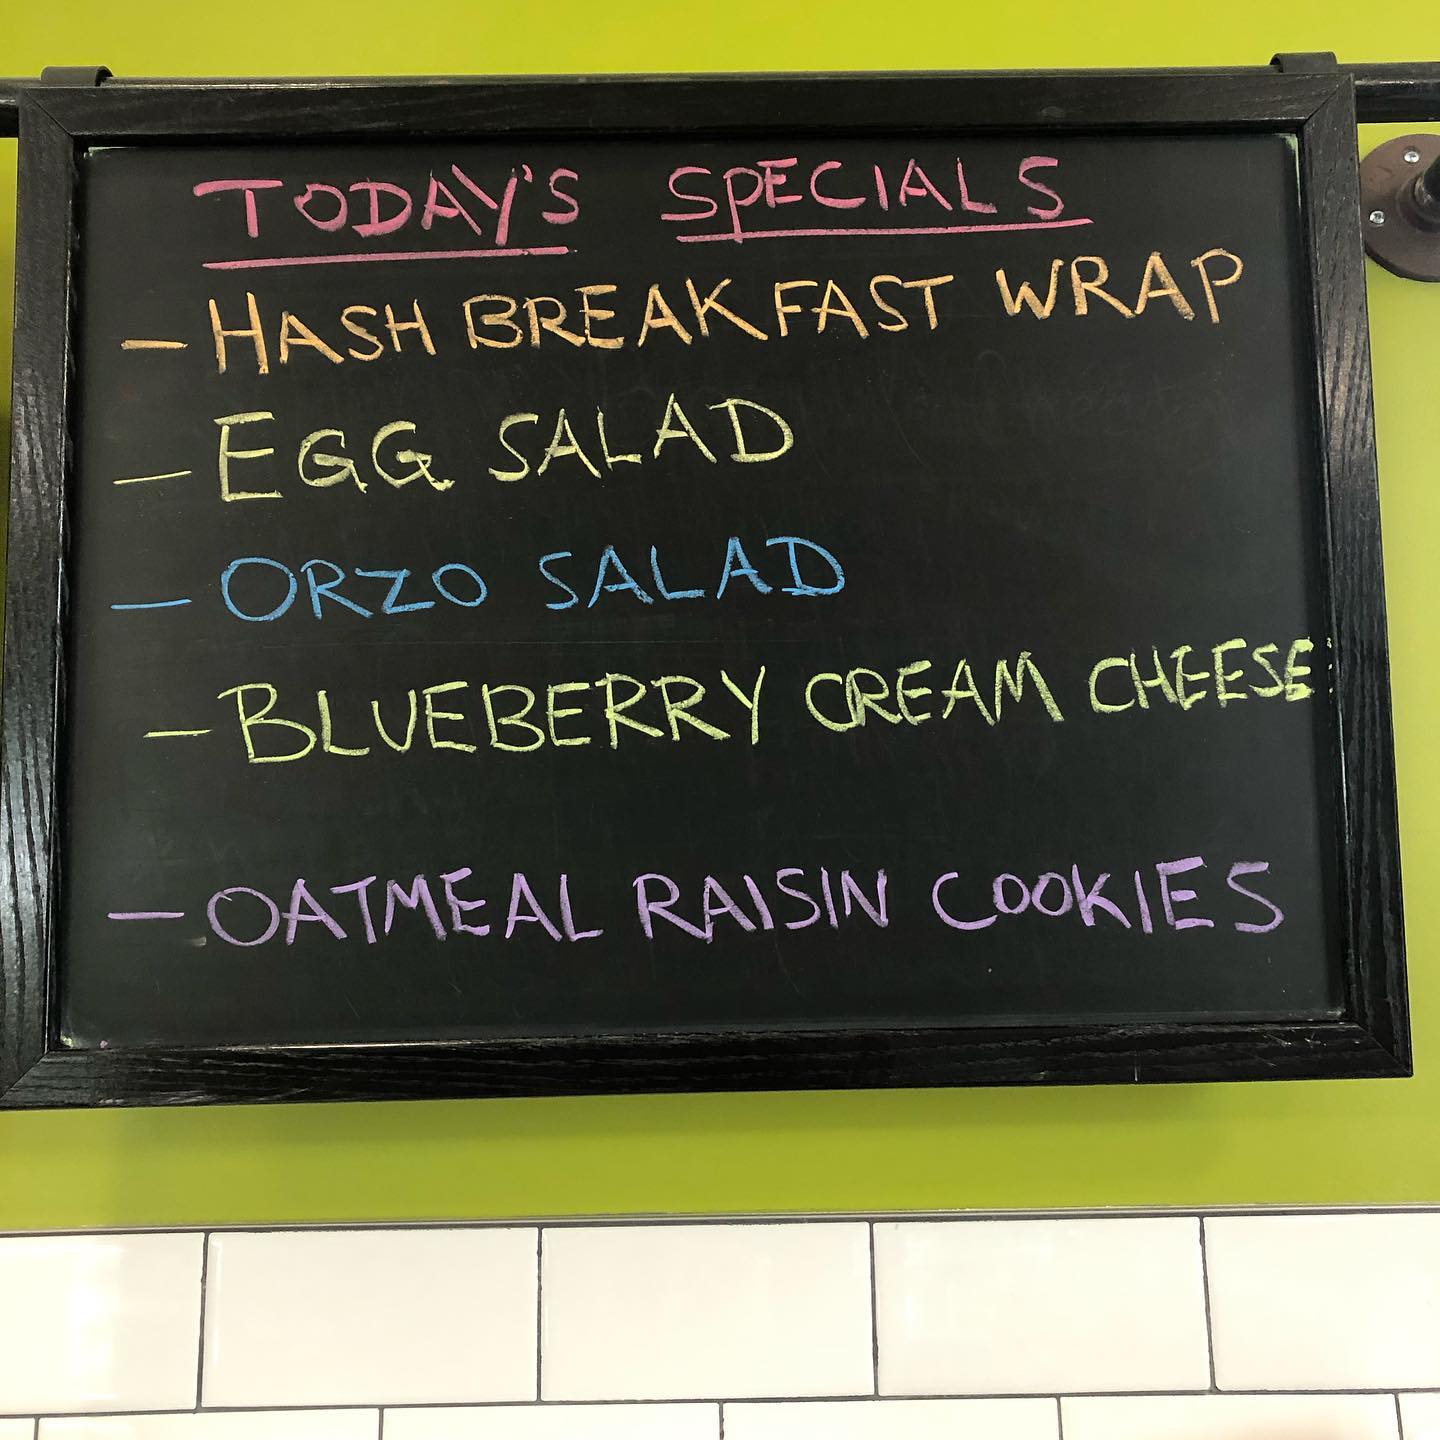 TODAY'S SPECIALS
- HASH BREAKFAST WRAP
- EGG SALAD
- ORZO SALAD
- BLUEBERRY CREAM CHEESE
- OATMEAL RAISIN COOKIES